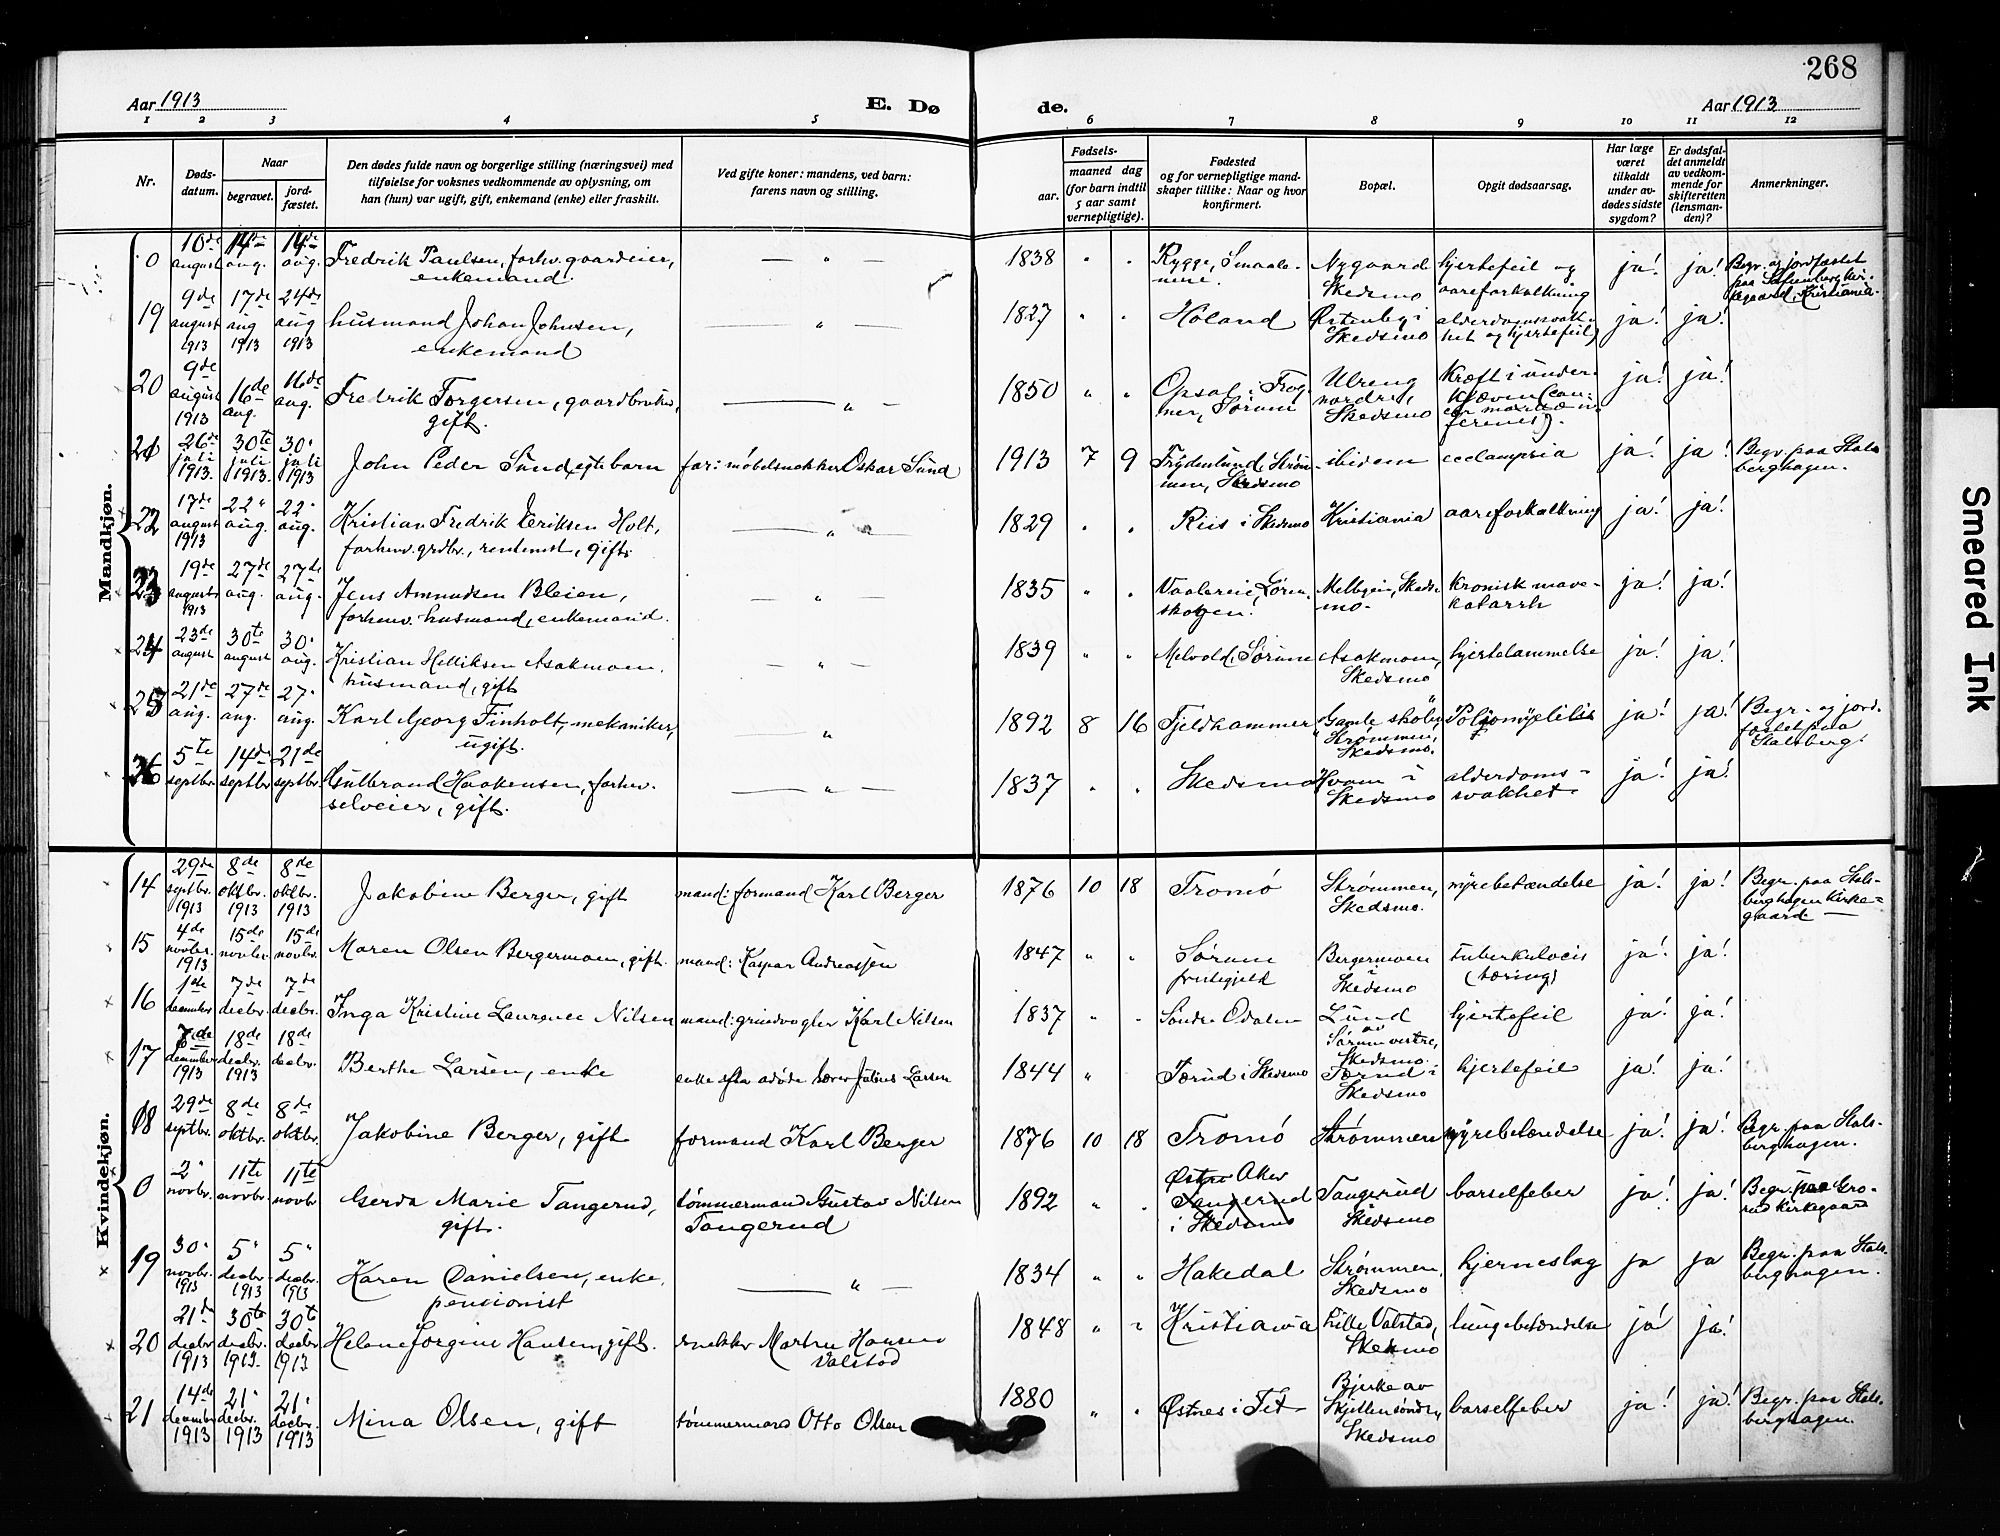 268
Aar 1913
E. Dø
de.
Aar 1913
1 2 3 4 5 6 7 8 9 10 11 12
Nr.
Døds-
datum.
Naar
begravet.
jord-
fæstet.
Den dødes fulde navn og borgerlige stilling (næringsvei) med
tilføielse for voksnes vedkommende av oplysning, om
han (hun) var ugift, gift, enkemand (enke) eller fraskilt.
Ved gifte koner: mandens, ved barn:
farens navn og stilling.
Fødsels-
aar.
maaned dag
(for barn indtil
5 aar samt
vernepligtige).
Fødested
og for vernepligtige mand-
skaper tillike: Naar og hvor
konfirmert.
Bopæl.
Opgit dødsaarsag.
Har læge
været
tilkaldt
under av-
dødes sidste
sygdom?
Er dødsfal-
det anmeldt
av vedkom-
mende for
skifteretten
(lensman-
den)?
Anmerkninger.
Mandkjøn.
0 10de august 14de aug. 14de aug. Fredrik Paulsen, forhv. gaardeier, enkemand. — " — 1838 " " Rygge, Smaalenene. Nygaard Skedsmo hjertefeil og aareforkalkning ja! ja! Begr. og jordfæstet paa Kirkegaard, Kristiania.
19 9de august 1913 17de aug 1913 24de aug 1913 husmand Johan Johnsen, enkemand — " — 1827 " " Høland Østenby i Skedsmo alderdomssvakhet og hjertefeil ja! ja!
20 9de august 1913 16de aug. 16de aug. Fredrik Torgersen, gaardbruker, gift. — " — 1850 " " Opsal i Frogner, Sørum Ulreng nordre, Skedsmo Kræft i underkjæven ja! ja!
21 26de juli 1913 30te juli 1913. 30. juli 1913 John Peder Sund, egte barn far: møbelsnekker Oskar Sund 1913 7 9 Frydenlund, Strømmen, Skedsmo ibidem ecclampsia ja! ja! Begr. paa Stalsberghagen.
22 17de august 1913 22" aug. 22. aug. Kristian Fredrik Eriksen Holt, forhenv. grdbr., rentenist, gift. — " — 1829 " " Riis i Skedsmo Kristiania aareforkalkning ja! ja!
23 19de august 1913 27de aug. 27de aug. Jens Amundsen Bleien, forhenv. husmand, enkemand. — " — 1835 " " Vaalerei, Lørenskogen! Melbyei, Skedsmo. kronisk mavekatarrh ja! ja!
24 23de august 30te august 30. aug. Kristian Helliksen Asakmoen. husmand, gift — " — 1839 " " Melvold, Sørum Asakmoen, Skedsmo hjertelammelse ja! ja!
25 21de aug. 27de aug. 27. aug. Karl Georg Finholt, mekaniker, ugift. " 1892 8 16 Fjeldhammer "Gamle skolen" Strømmen, Skedsmo. Poliomyelitis ja! ja! Begr. og jordfæstet paa Stalsberg.
26 5te septbr. 14de septbr 21de septbr. Gulbrand Haakensen, forhv. selveier, gift. — " — 1837 " " Skedsmo Hvam i Skedsmo alderdomssvakhet. ja! ja!
Kvindekjøn.
14 29de septbr. 1913 8de oktbr. 1913 8de oktbr. 1913 Jakobine Berger, gift mand: formand Karl Berger 1876 10 18 Tromø Strømmen, Skedsmo. nyrebetændelse ja! ja! Begr. paa Stalsberghagen Kirkegaard —
15 4de novbr. 1913 15de novbr. 15de novbr. Maren Olsen Bergermoen, gift. mand: Kaspar Andreassen 1847 " " Sørum prestegjeld Bergermoen i Skedsmo tuberkulosis (tæring) ja! ja!
16 1ste december 7de decbr. 7de decbr. Inga Kristine Laurence Nilsen mand: grindvogter Karl Nilsen 1837 " " Søndre Odalen Lund av Sørum vestre, Skedsmo. hjertefeil ja! ja!
17 7de december 1913 18de decbr. 1913 18de decbr. Berthe Larsen, enke enke efter avdøde lærer Julius Larsen 1844 " Tærud i Skedsmo Tærud i Skedsmo hjertefeil ja! ja!
18 29de septbr. 8de oktbr. 8de oktbr. Jakobine Berger, gift formand Karl Berger 1876 10 18 Tromø Strømmen nyrebetændelse ja! ja! Begr. paa Stalsberghagen.
0 2" novbr. 11te novbr. 11te novbr Gerda Marie Tangerud, gift. tømmermand Gustav Nilsen Tangerud 1892 " " Østre Aker Tangerud i Skedsmo Tangerud Skedsmo barselfeber ja! ja! Begr. paa Grorud Kirkegaard
19 30. novbr. 1913 5" decbr. 1913 5" decbr. 1913 Karen Danielsen, enke, pensionist — " — 1834 " " Hakedal Strømmen, Skedsmo hjerneslag ja ja Begr. paa Stalsberghagen.
20 21de decbr. 1913 30te decbr. 1913. 30te decbr 1913 Helene Jorgine Hansen, gift. snekker Martin Hansen Valstad 1848 " " Kristiania Lille Valstad, Skedsmo lungebetændelse ja ja!
21 14de december 1913 21. decbr. 1913 21. decbr. 1913 Mina Olsen, gift tømmermand Otto Olsen 1880 " " Østnes i Fet Bjerke av Skjetten søndre, Skedsmo barselfeber ja! ja! Begr. paa Stalsberghagen.
Smeared Ink